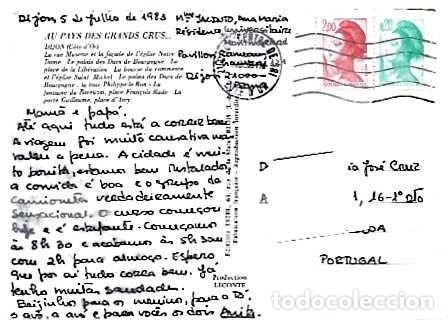 Dijon, 5 de Julho de 1983
AU PAYS DES GRANDS CRUS...
DIJON (Côte d'Or)
La rue Musette et la façade de l'église Notre
Dame. Le palais des Ducs de Bourgogne. La
place de la Libération. La bourse du commerce
et l'église Saint Michel. Le palais des Ducs de
Bourgogne, la tour Philippe-le-Bon - La
fontaine du Bareuzai, place François Rude. La
porte Guillaume, place d'Arcy.
Mamã e papá,
Até aqui tudo está a correr bem.
A viagem foi muito cansativa mas
valeu a pena. A cidade é mui-
to bonita, estamos bem instalados,
a comida é boa e o grupo da
camioneta verdadeiramente
sensacional. O curso começou
hoje e é estafante. Começamos
às 8h 30 e acabamos às 5h 30m
com 2h para almoço. Espero
que por aí tudo corra bem. Já
tenho muitas saudades.
Beijinho para o menino, para o
avô, a avó e para vocês os dois Anita
Mlle Ana Maria
Résidence Universitaire
Montmuzard
Pavillon Rameau
Dijon 21000
2,00
0,20
Production
LECONTE
D
A
José Cruz
1, 16-1º Dto
DA
PORTUGAL
todocoleccion